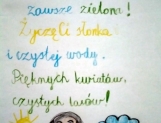 zawsze zielona!
Życzę Ci słonka
i czystej wody.
Pięknych kwiatów,
czystych lasów!